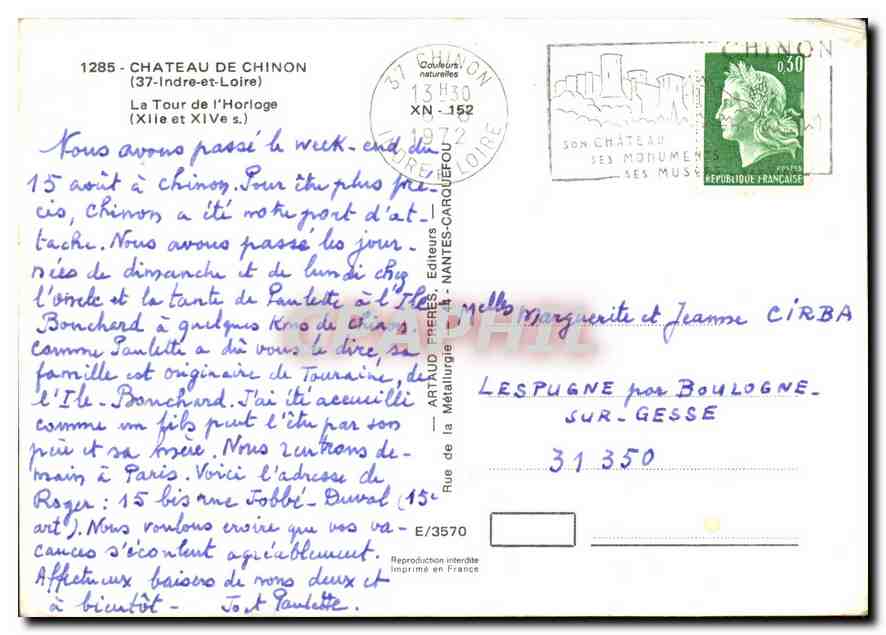 1285 - CHATEAU DE CHINON
(37-Indre-et-Loire)
La Tour de l'Horloge
(XIIe et XIVe s.)
Nous avons passé le week-end du
15 août à Chinon. Pour être plus pré-
cis, Chinon a été notre port d'at-
tache. Nous avons passé les jour-
nées de dimanche et de lundi chez
l'oncle et la tante de Paulette à l'Ile
Bouchard à quelques Kms de Chinon.
Comme Paulette a dû vous le dire, sa
famille est originaire de Touraine, de
l'Ile-Bouchard. J'ai été accueilli
comme un fils peut l'être par son
père et sa mère. Nous rentrons de-
main à Paris. Voici l'adresse de
Roger : 15 bis rue Jobbé-Duval (15e
art). Nous voulons croire que vos va-
cances s'écoulent agréablement.
Affectueux baisers de nous deux et
à bientôt - Jo et Paulette.
Couleurs
naturelles
XN - 152
37 CHINON
13H30
1972
INDRE ET LOIRE
CHINON
SON CHÂTEAU
SES MONUMENTS
SES MUSÉES
0,30
POSTES
REPUBLIQUE FRANÇAISE
— ARTAUD FRÈRES, Editeurs —
Rue de la Métallurgie - 44 - NANTES-CARQUEFOU
CPAPHIL
Melles Marguerite et Jeanne CIRBA
LESPUGNE par BOULOGNE-
SUR-GESSE
31 350
E/3570
Reproduction interdite
Imprimé en France